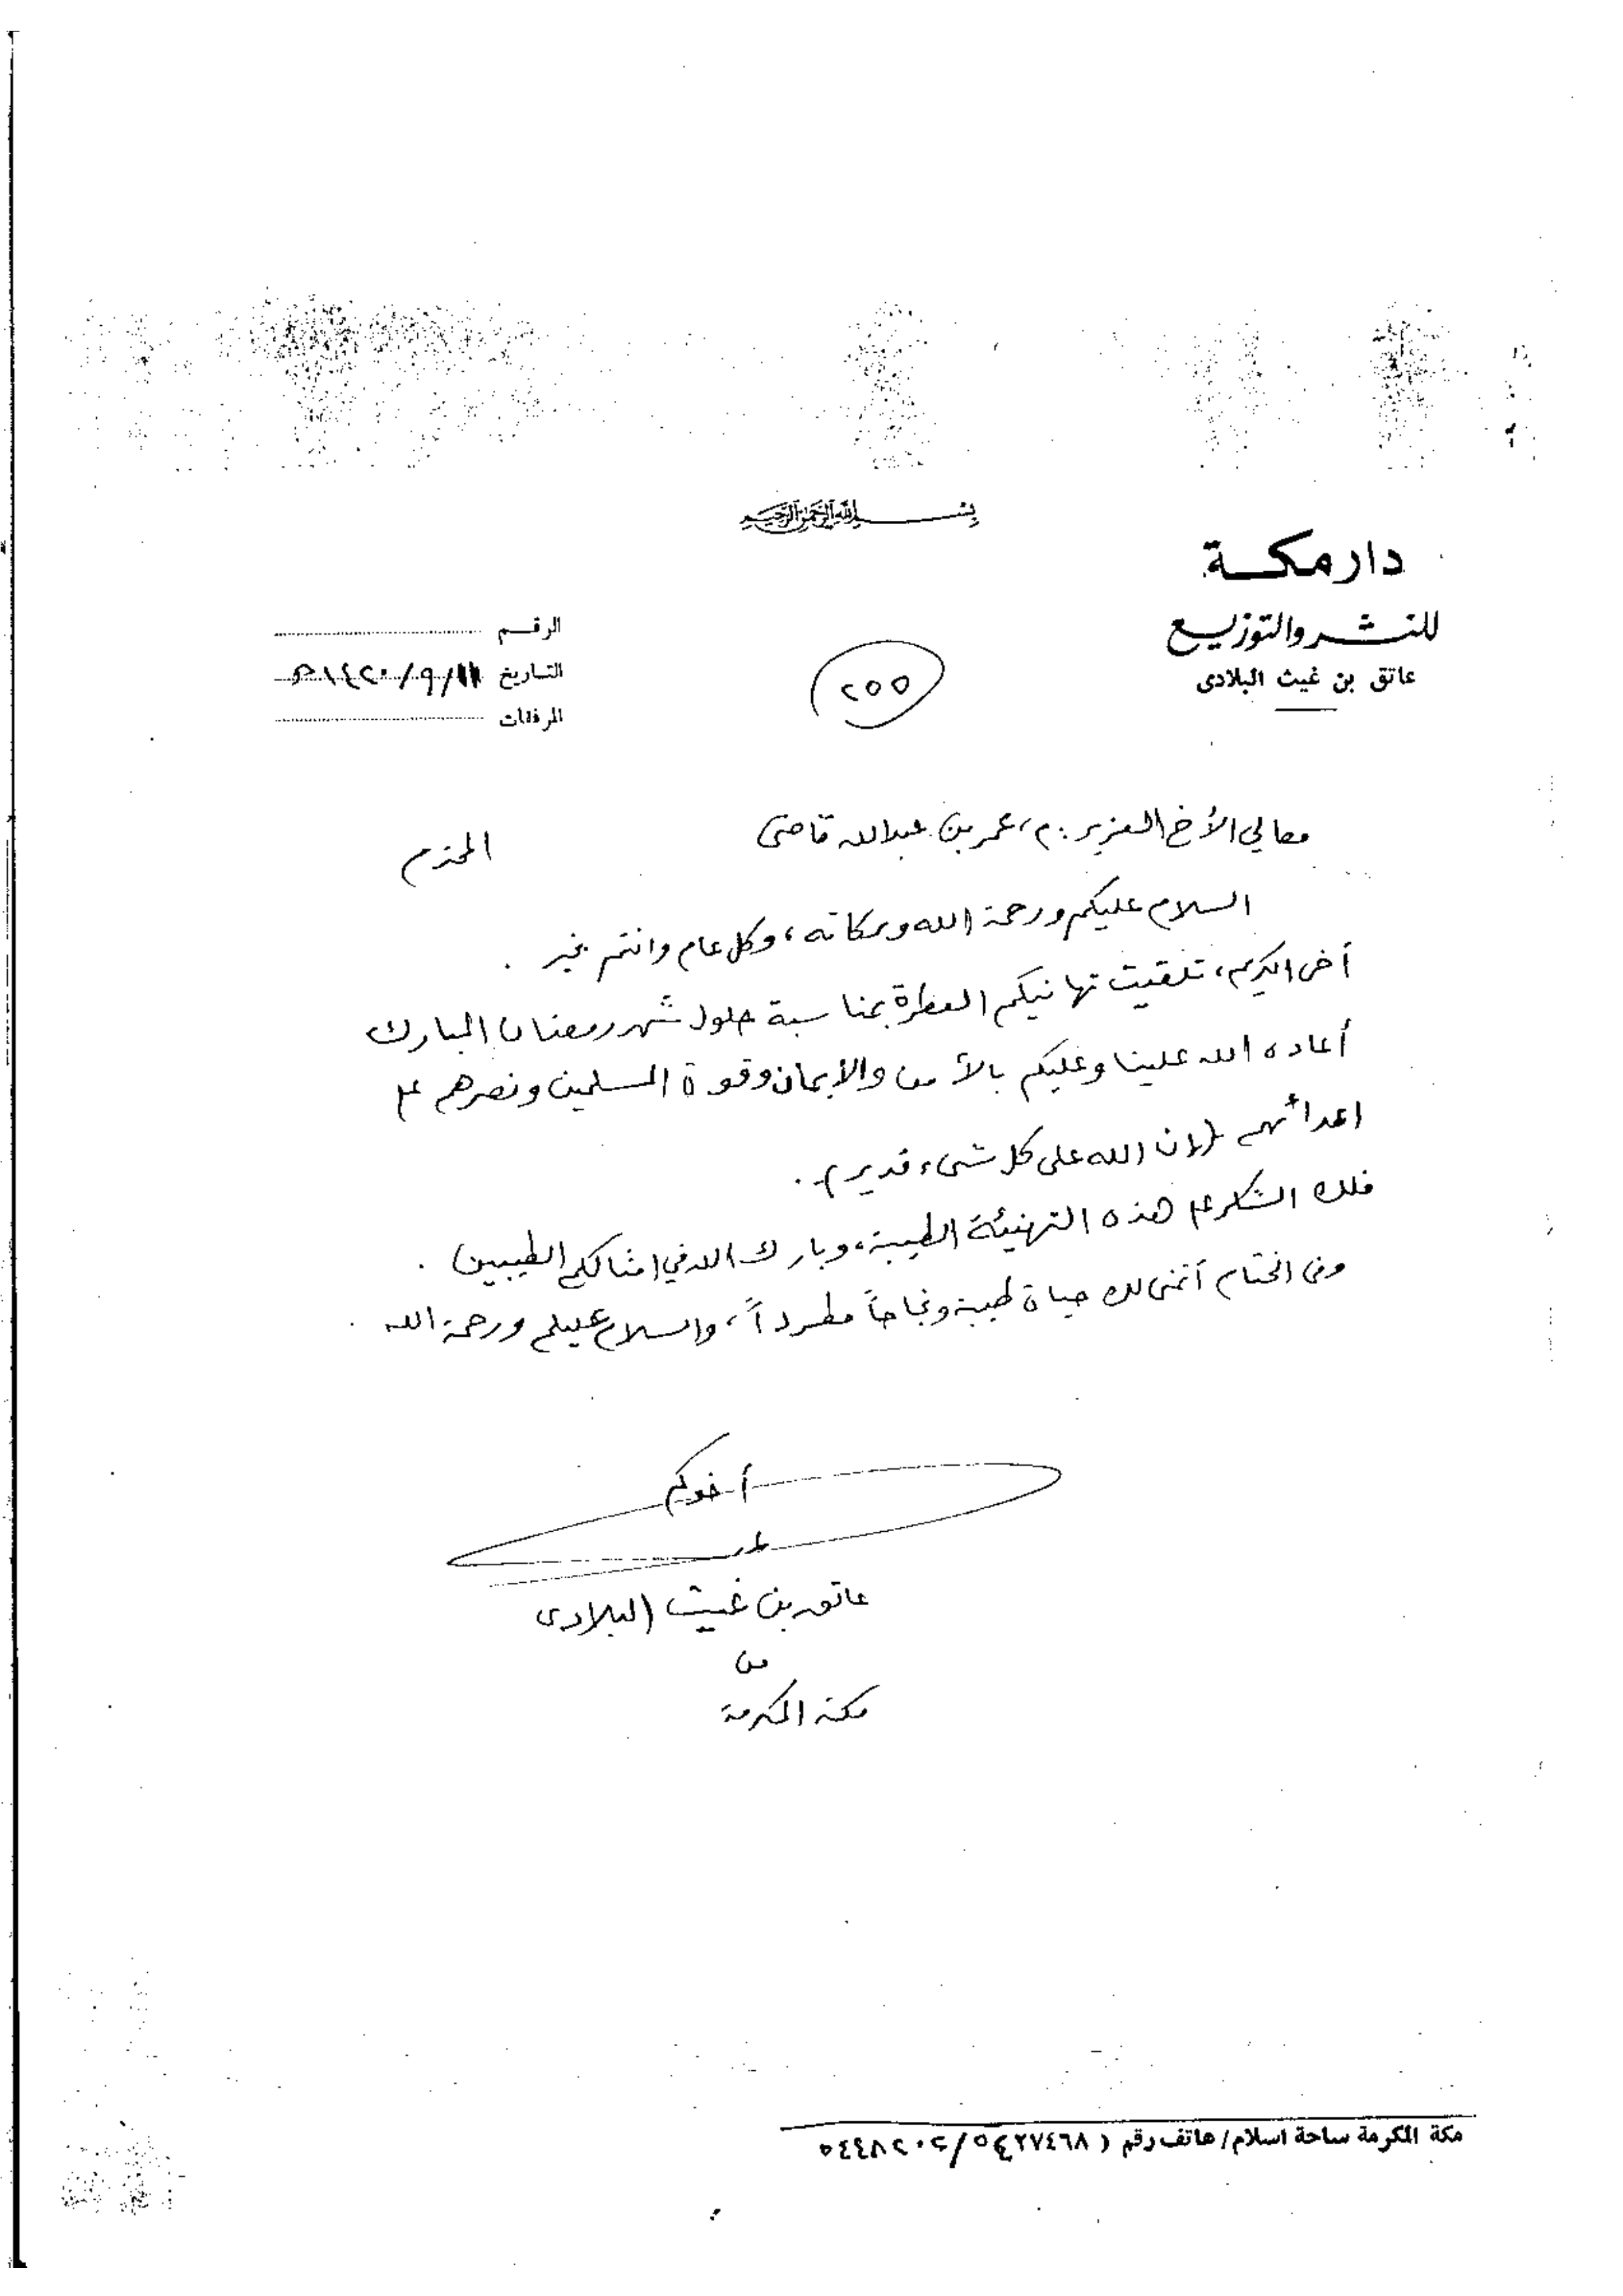 بسم الله الرحمن الرحيم
دار مكة
للنشر والتوزيع
عاتق بن غيث البلادى
الرقم
التاريخ ١١/٩/١٤٢٠هـ
المرفقات
٢٥٥
معالي الأخ العزيز: م، عمر بن عبدالله قاضى المحترم
السلام عليكم ورحمة الله وبركاته، وكل عام وانتم بخير .
أخى الكريم، تلقيت تهانيكم العطرة بمناسبة حلول شهر رمضان المبارك
أعاده الله علينا وعليكم بالأمن والإيمان وقوة المسلمين ونصرهم على
اعدائهم (إن الله على كل شىء قدير).
فلك الشكر على هذه التهنيئة الطيبة، وبارك الله في امثالكم الطيبين .
وفى الختام أتمنى لك حياة طيبة ونجاحاً مطرداً، والسلام عليكم ورحمة الله .
أخوكم
عاتق بن غيث البلادى
من
مكة المكرمة
مكة المكرمة ساحة اسلام / هاتف رقم (